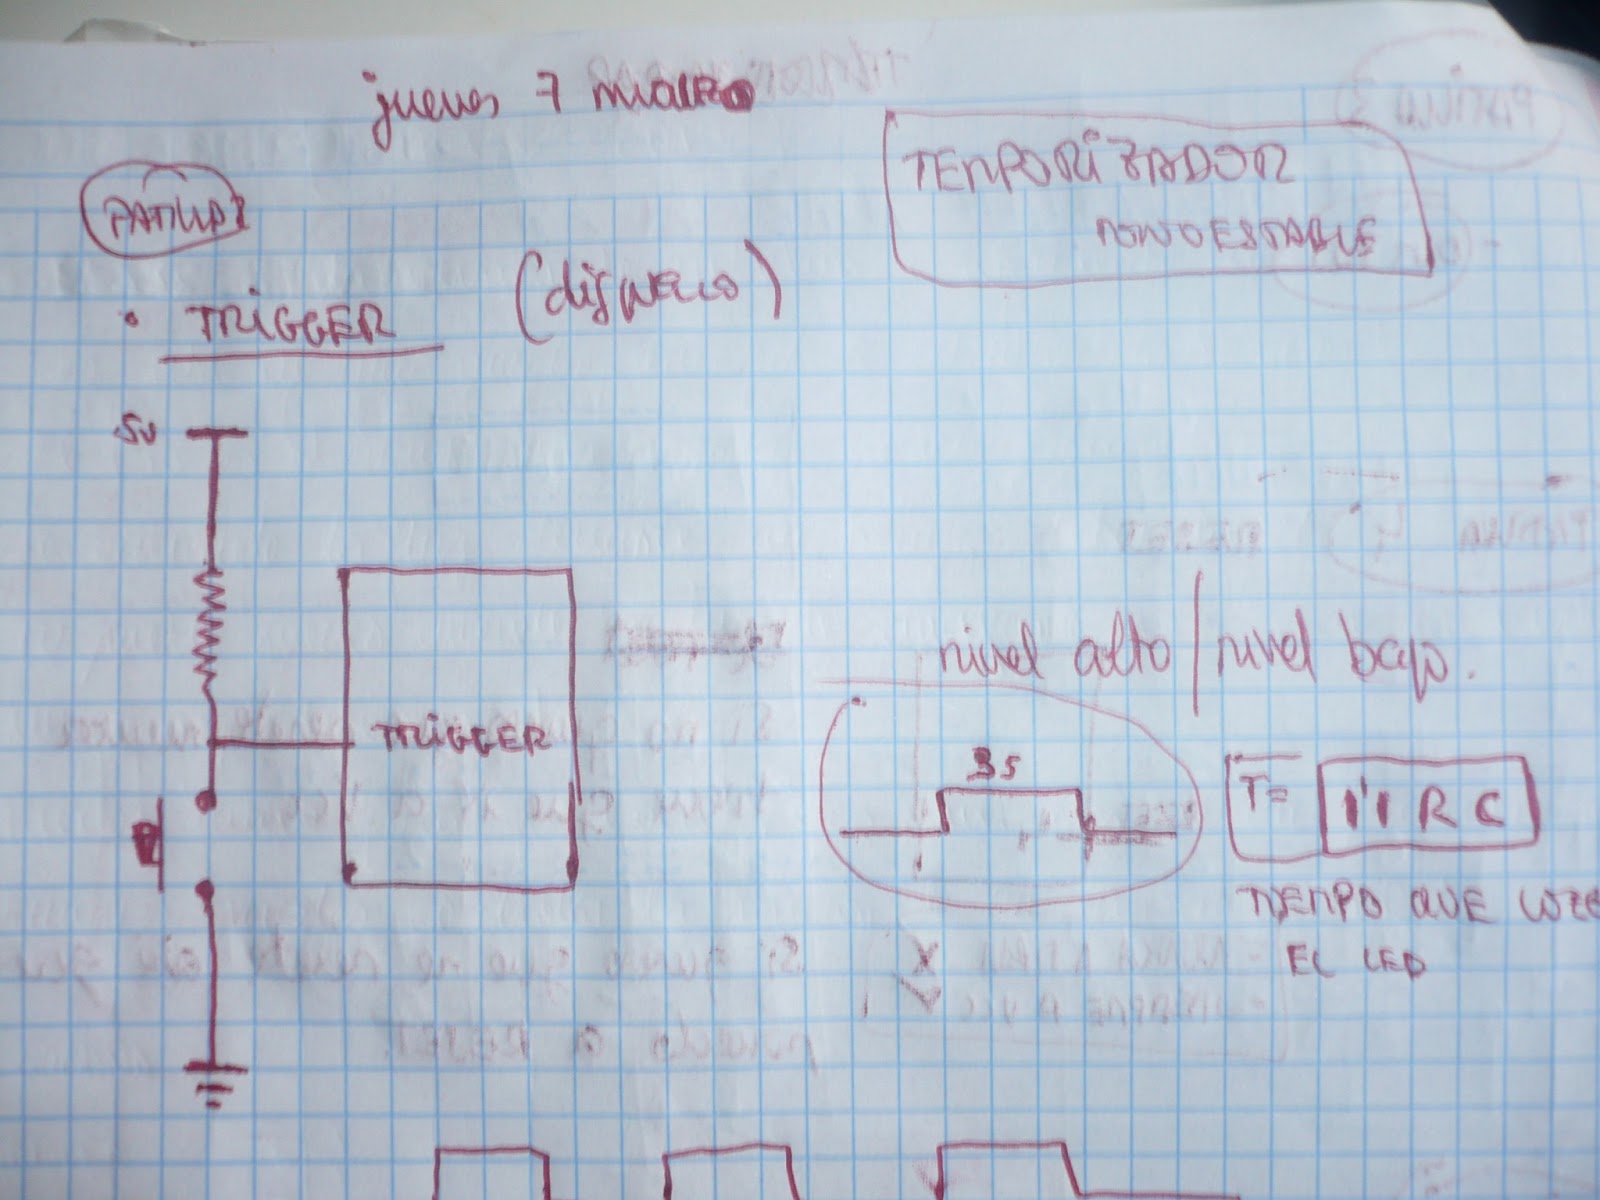 jueves 7 marzo
TEMPORIZADOR
MONOESTABLE
PATILLA 2
• TRIGGER (disparo)
5v
TRIGGER
nivel alto / nivel bajo.
3s
T= 1'1 R C
TIEMPO QUE LUZE
EL LED